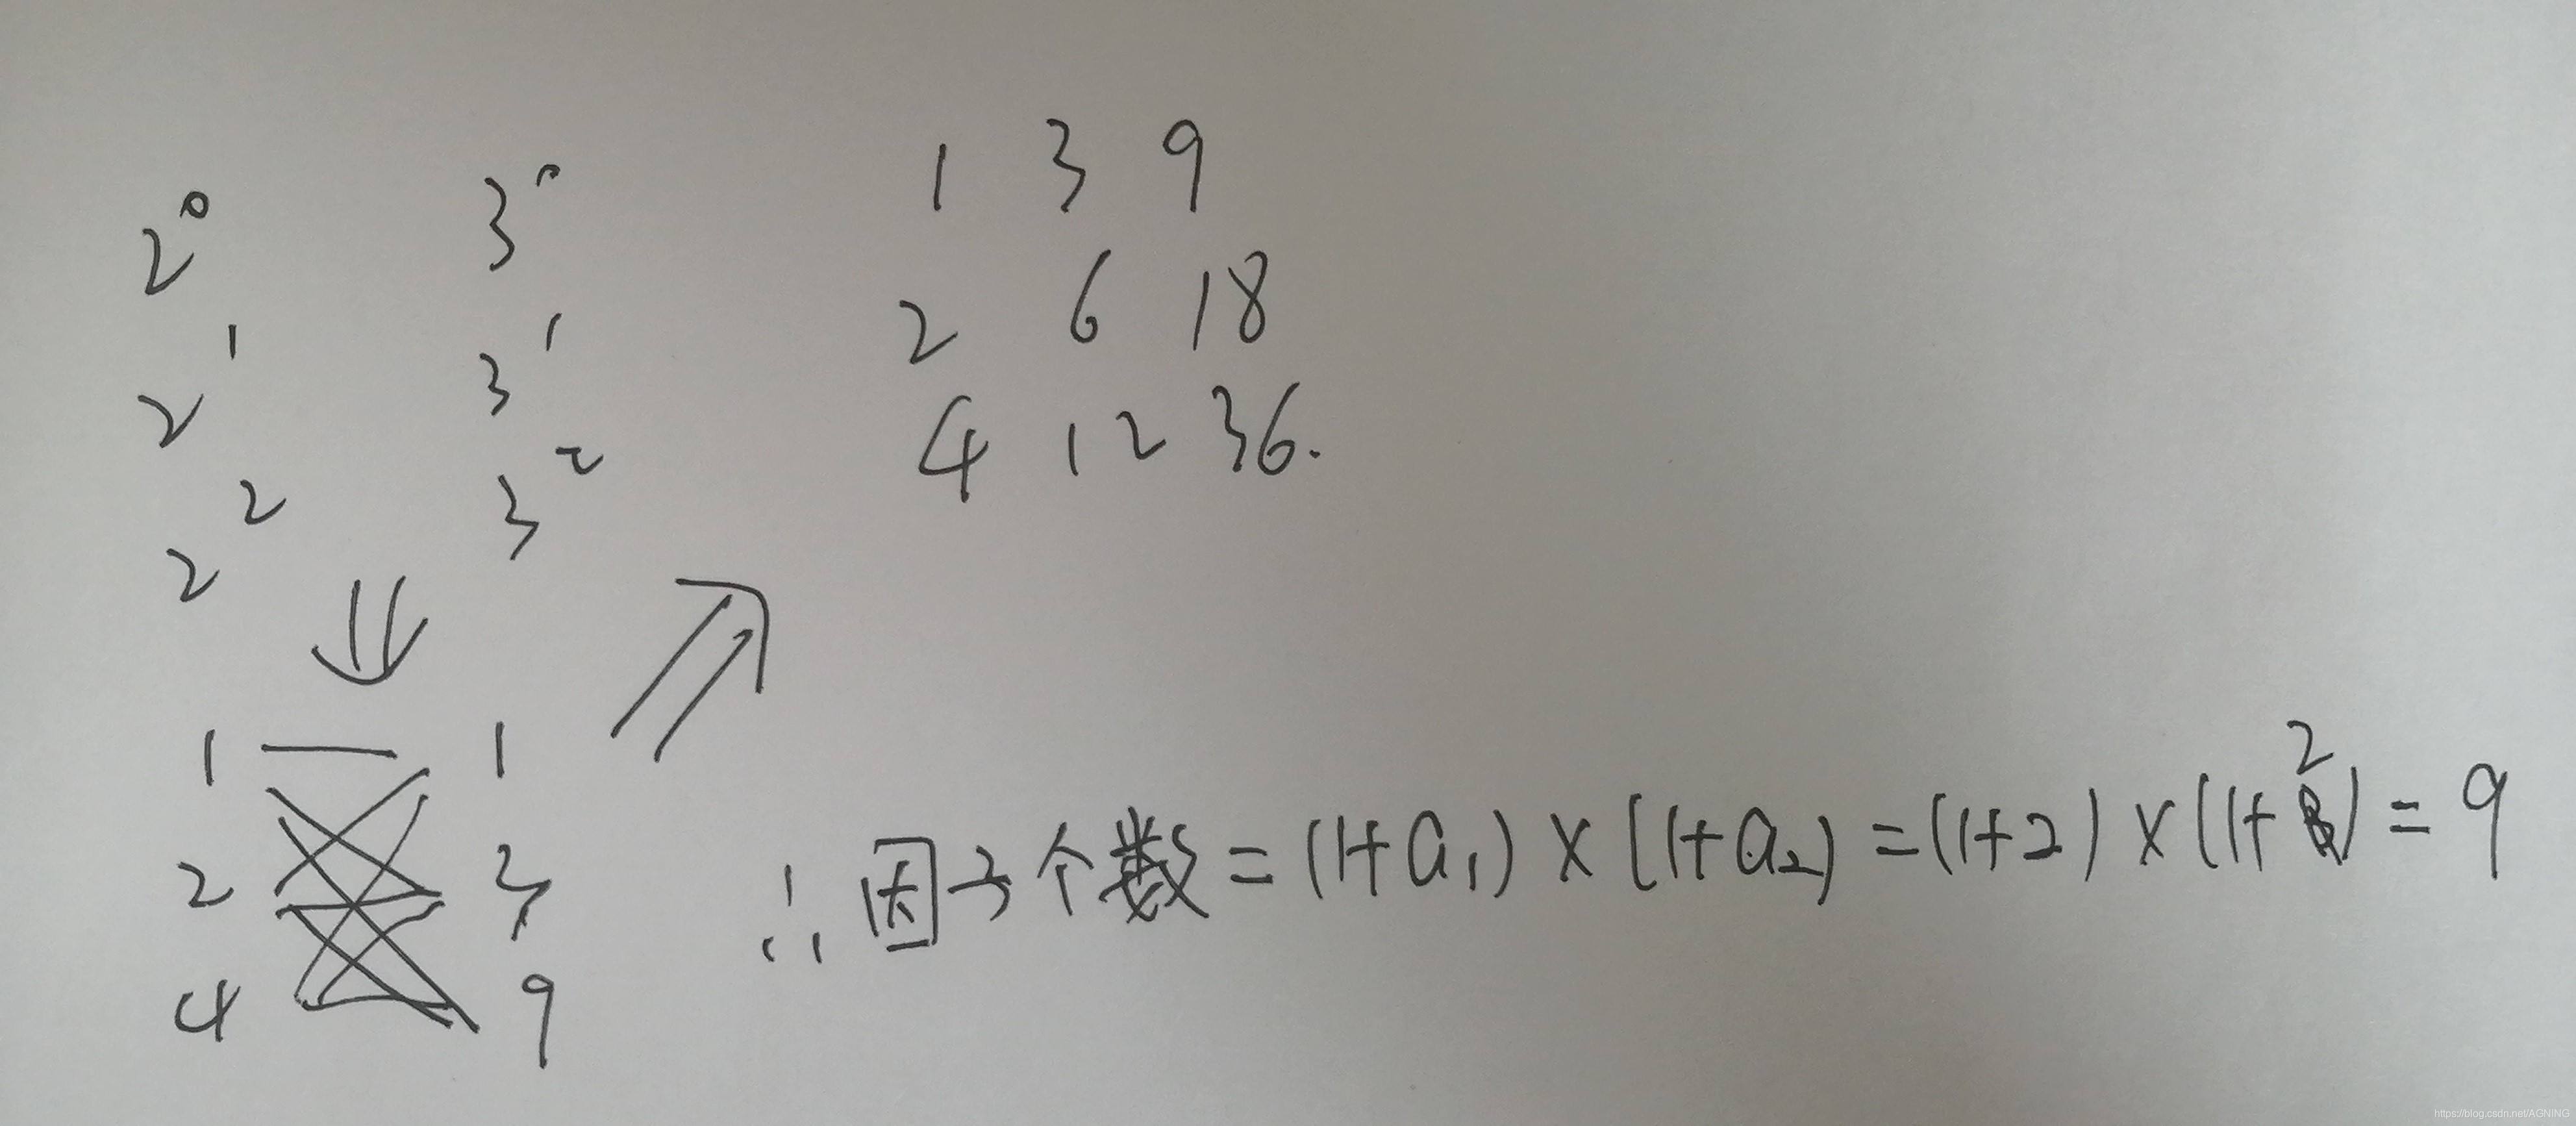 2⁰ 3⁰
2¹ 3¹
2² 3²
1 3 9
2 6 18
4 12 36.
1 1
2 3
4 9
∴因子个数=(1+a₁)×(1+a₂)=(1+2)×(1+2)=9
https://blog.csdn.net/AGNING